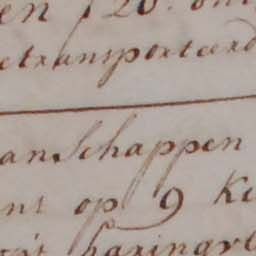 en f 20. on
etransporteerd
anschappen
nt op 9 Ke
haringvl